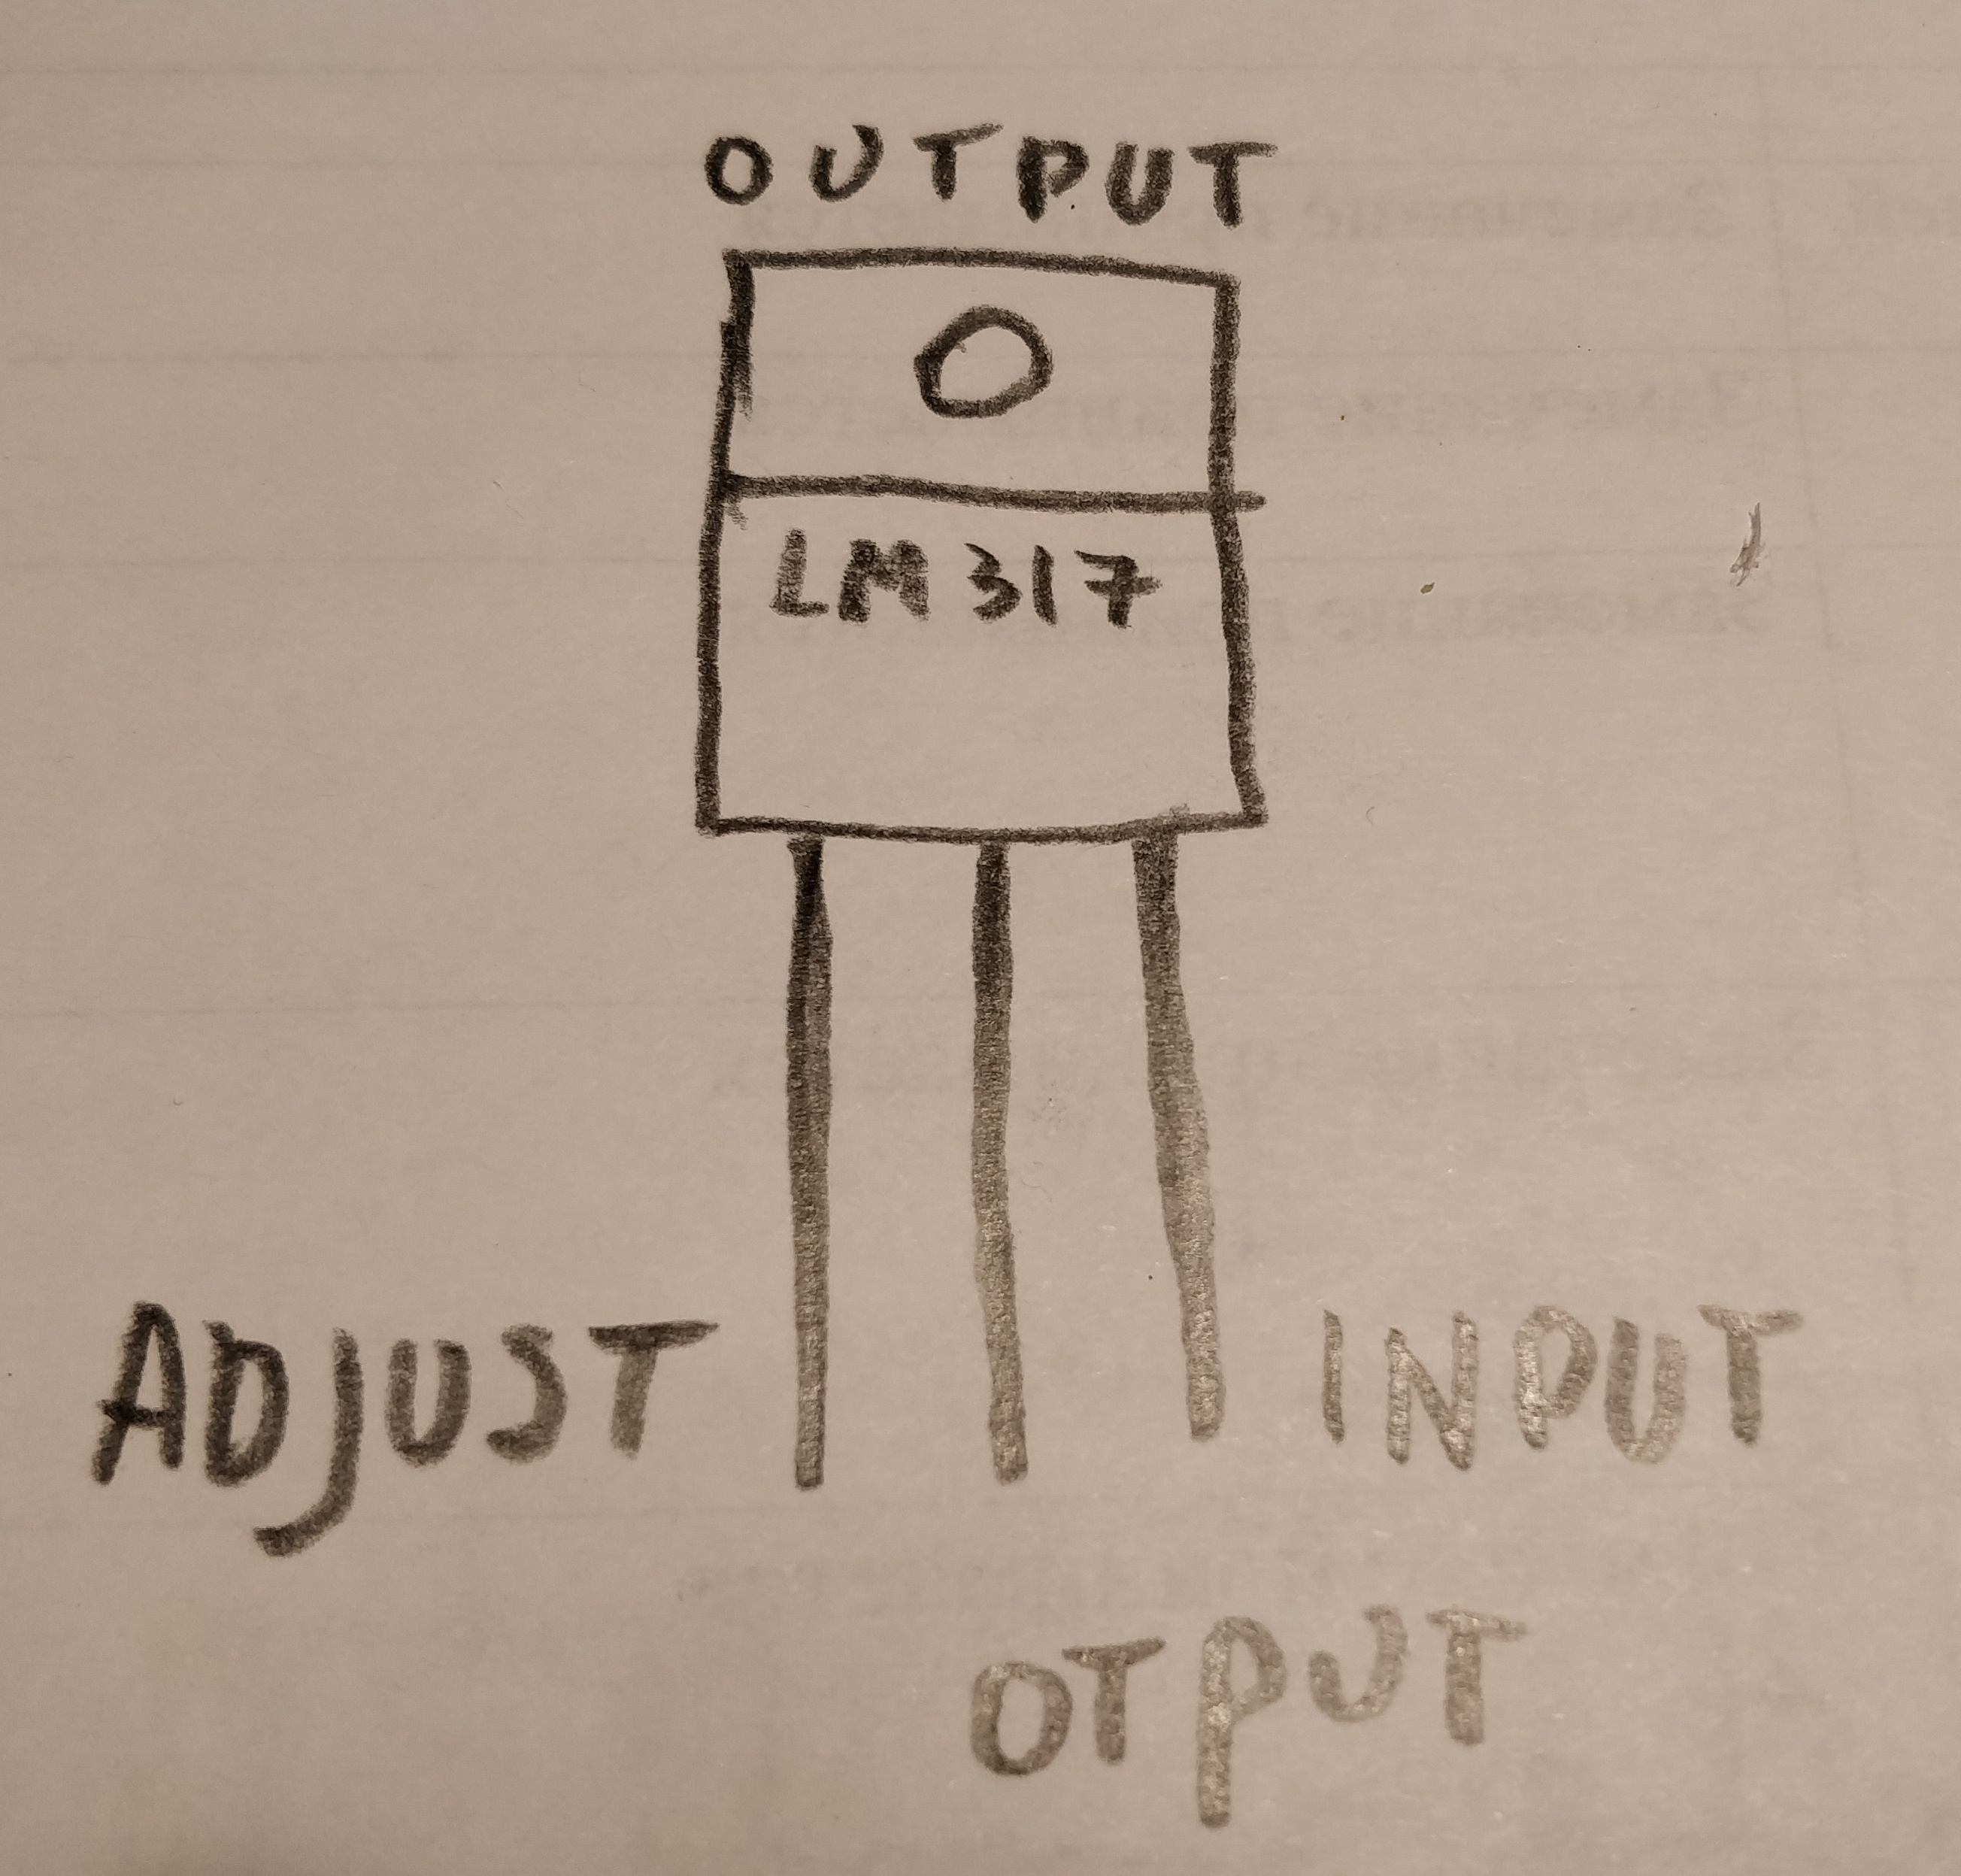 OUTPUT
LM317
ADJUST
INPUT
OTPUT